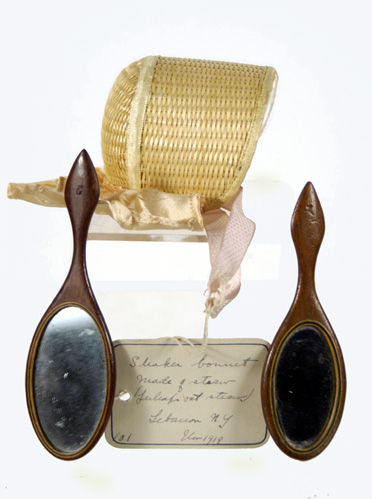 Shaker bonnet
Made of straw
Lebanon N Y
101
1919
G